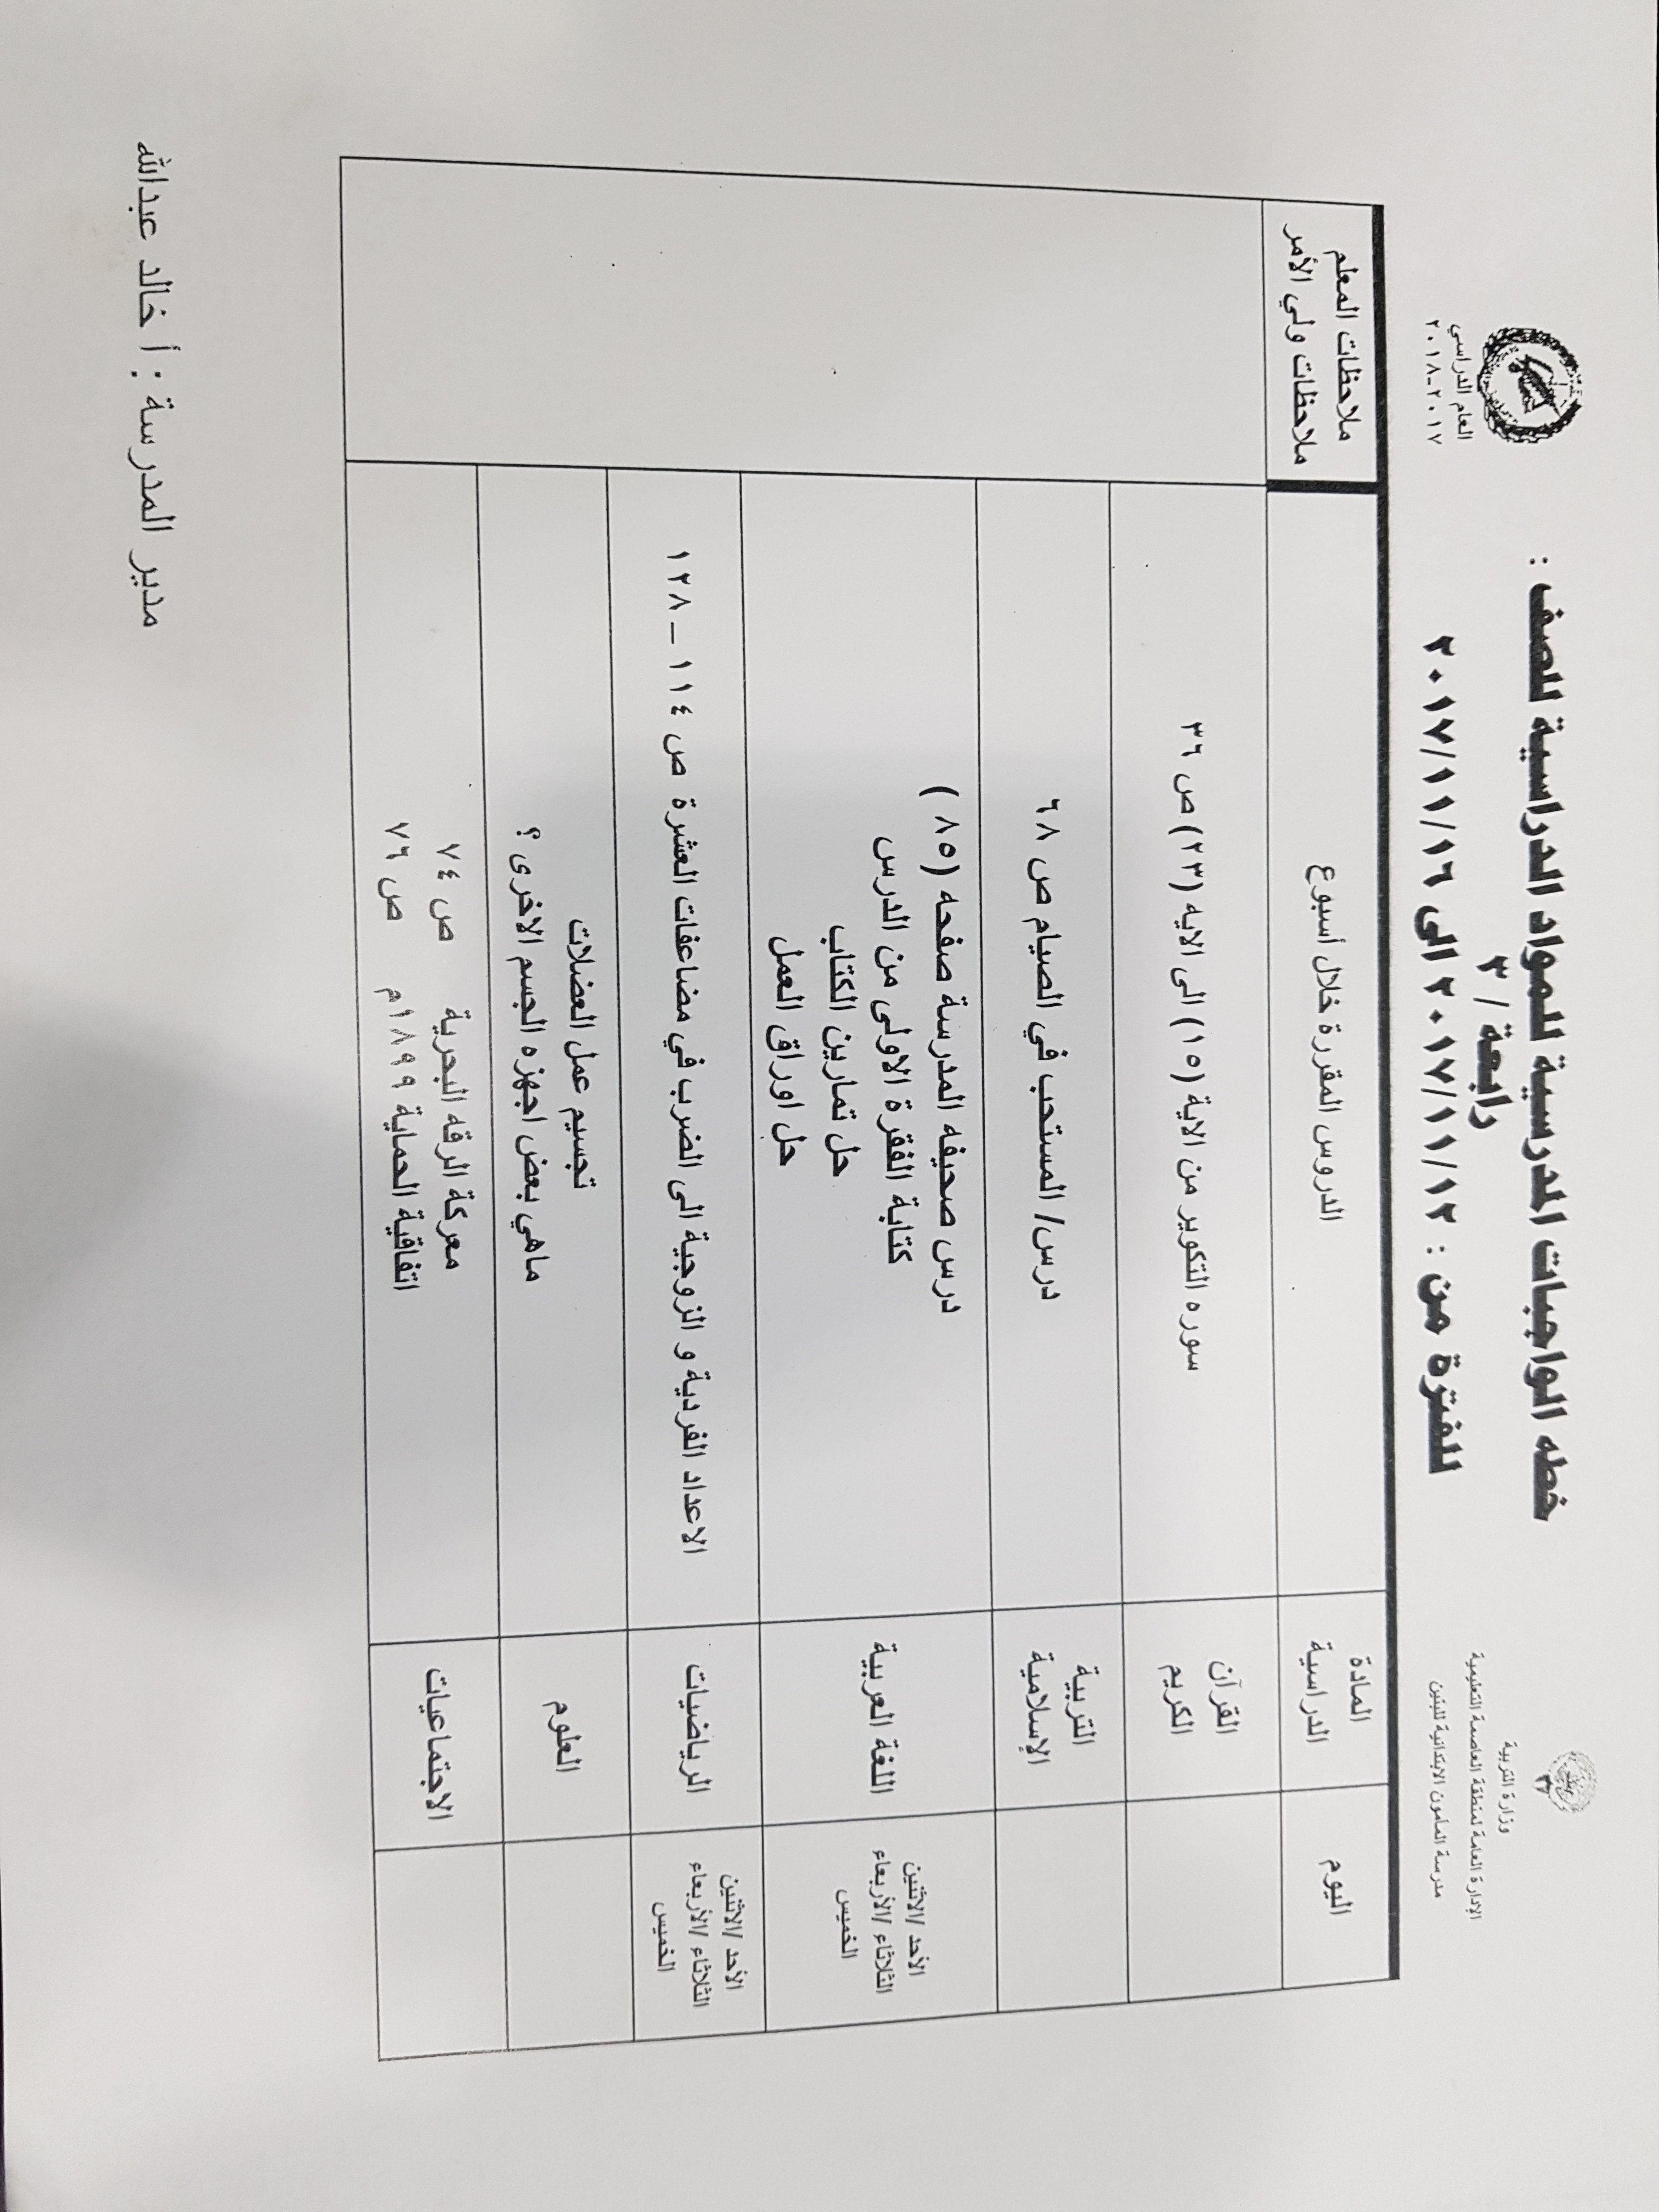 وزارة التربية
الإدارة العامة لمنطقة العاصمة التعليمية
مدرسة المأمون الابتدائية للبنين
خطه الواجبات المدرسية للمواد الدراسية للصف :
رابعة / ٣
للفترة من : ٢٠١٧/١١/١٢ الى ٢٠١٧/١١/١٦
العام الدراسي
٢٠١٧-٢٠١٨
اليوم
المادة
الدراسية
الدروس المقررة خلال أسبوع
ملاحظات المعلم
ملاحظات ولي الأمر
القرآن
الكريم
سوره التكوير من الاية (١٥) الى الايه (٢٣) ص ٣٦
التربية
الإسلامية
درس/ المستحب في الصيام ص ٦٨
الأحد /الاثنين
الثلاثاء /الأربعاء
الخميس
اللغة العربية
درس صحيفه المدرسة صفحه (٨٥ )
كتابة الفقرة الاولى من الدرس
حل تمارين الكتاب
حل اوراق العمل
الأحد /الاثنين
الثلاثاء /الأربعاء
الخميس
الرياضيات
الاعداد الفردية و الزوجية الى الضرب في مضاعفات العشرة ص ١١٤ – ١٢٨
العلوم
تجسيم عمل العضلات
ماهي بعض اجهزه الجسم الاخرى ؟
الاجتماعيات
معركة الرقه البحرية ص ٧٤
اتفاقية الحماية ١٨٩٩م ص ٧٦
مدير المدرسة : أ خالد عبدالله